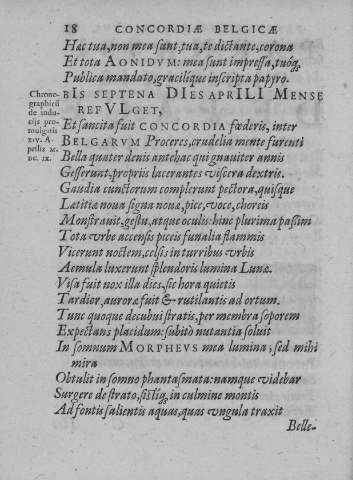 18 CONCORDIÆ BELGICÆ
Hæc tua, non mea sunt, tua, te dictante, corona
Et tota AONIDVM: mea sunt impressa, tuóq́;
Publica mandato, gracilíque inscripta papyro.
BIS SEPTENA DIES APRILI MENSE
REFVLGET,
Chrono-
graphicũ
de indu-
cijs pro-
mulgatis
XIV. A-
prilis M.
DC. IX.
Et sancita fuit CONCORDIA fœderis, inter
BELGARVM Proceres, crudelia mente furenti
Bella quater denis antehac qui gnauiter annis
Gesserunt, propriis lacerantes viscera dextris.
Gaudia cunctorum complerunt pectora, quisque
Lætitiæ noua signa nouæ, pice, voce, choreis
Monstrauit, gestu, atque oculis: hinc plurima passim
Tota vrbe accensis piceis funalia flammis
Vicerunt noctem, celsis in turribus vrbis
Aemula luxerunt splendoris lumina Lunæ.
Visa fuit nox illa dies, sic hora quietis
Tardior, auroræ fuit & rutilantis ad ortum.
Tunc quoque decubui stratis, per membra soporem
Expectans placidum: subitò nutantia soluit
In somnum MORPHEVS mea lumina; sed mihi
mira
Obtulit in somno phantasmata: namque videbar
Surgere de strato, sistíq́; in culmine montis
Ad fontis salientis aquas, quas vngula traxit
Belle-